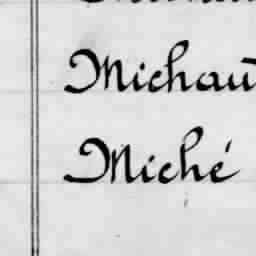 Michau
Miché